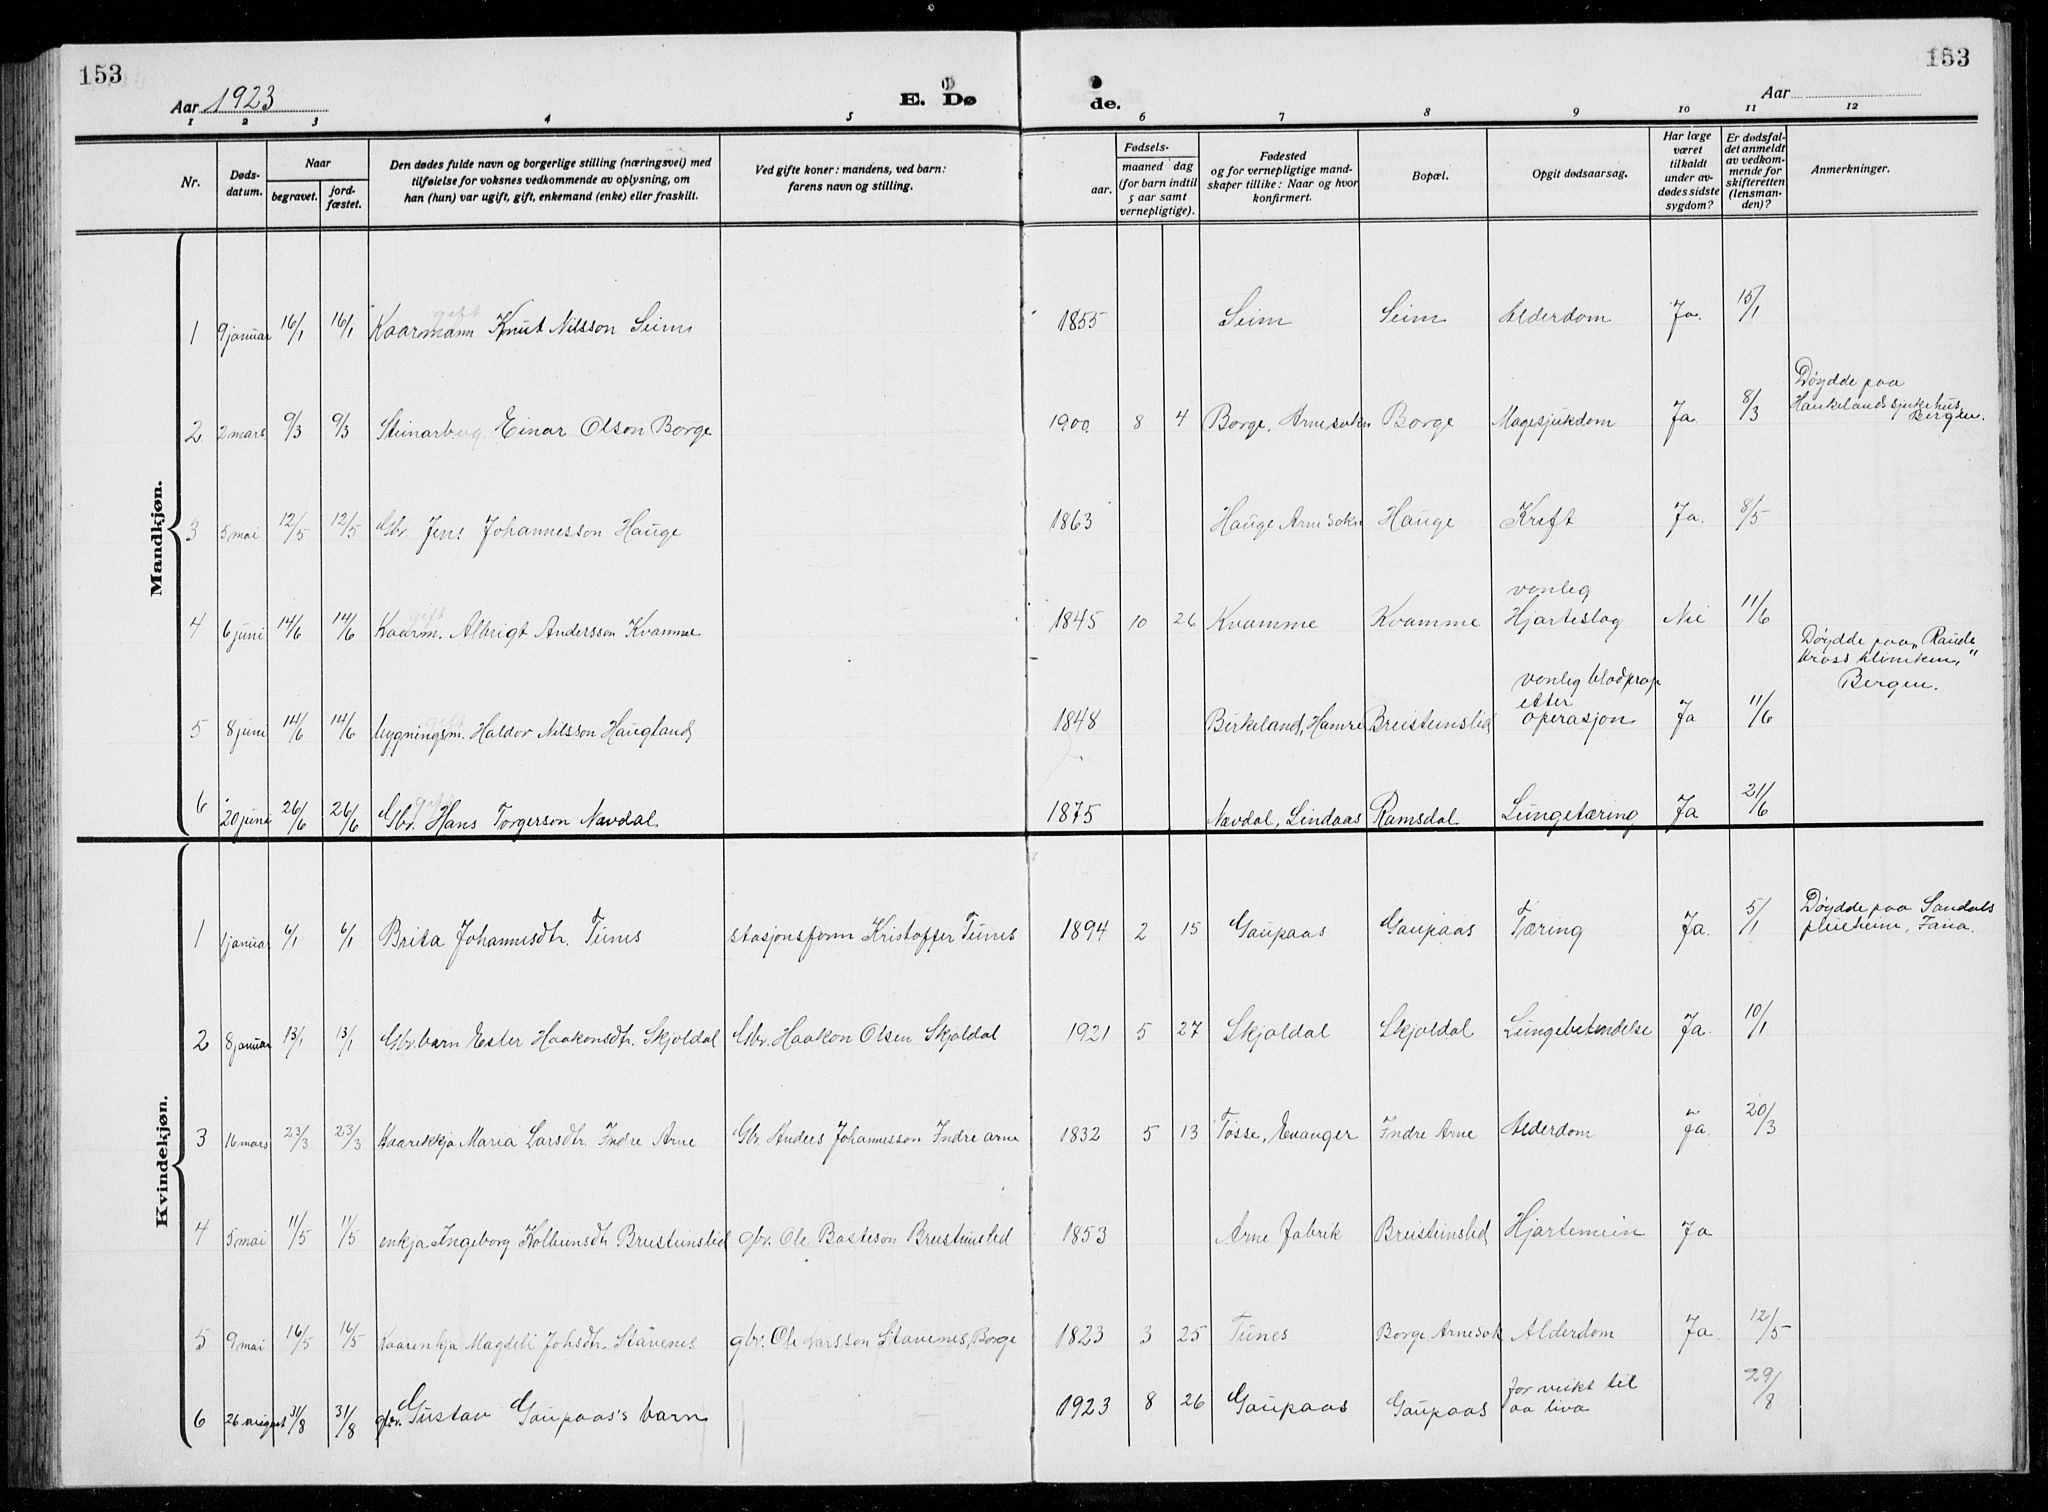 153
153
Aar 1923
E. Dø
de.
Aar
1 2 3 4 5 6 7 8 9 10 11 12
Nr.
Døds-
datum.
Naar
begravet.
jord-
fæstet.
Den dødes fulde navn og borgerlige stilling (næringsvei) med
tilføielse for voksnes vedkommende av oplysning, om
han (hun) var ugift, gift, enkemand (enke) eller fraskilt.
Ved gifte koner: mandens, ved barn:
farens navn og stilling.
Fødsels-
aar.
maaned dag
(for barn indtil
5 aar samt
vernepligtige).
Fødested
og for vernepligtige mand-
skaper tillike: Naar og hvor
konfirmert.
Bopæl.
Opgit dødsaarsag.
Har læge
været
tilkaldt
under av-
dødes sidste
sygdom?
Er dødsfal-
det anmeldt
av vedkom-
mende for
skifteretten
(lensman-
den)?
Anmerkninger.
Mandkjøn.
gift
1 9 januar 16/1 16/1 Kaarmann Knut Nilsson Seim 1855 Seim Seim Alderdom Ja. 15/1
Døydde paa
Haukelands sjukehus,
Bergen.
2 2 mars 9/3 9/3 Steinarb. Einar Olson Borge 1900 8 4 Borge, Arnesokn Borge Magesjukdom Ja. 8/3
3 5 mai 12/5 12/5 Gbr. Jens Johannesson Hauge 1863 Hauge Arnesokn Hauge Kreft Ja. 8/5
gift
vonleg
4 6 juni 14/6 14/6 Kaarm. Albrigt Andersson Kvamme 1845 10 26 Kvamme Kvamme Hjarteslag Nei 11/6
Døydde paa „Raude
kross kliniken,“
Bergen.
gift
vonleg blodprop
etter
5 8 juni 14/6 14/6 bygningsm. Haldor Nilsson Haugland 1848 Birkeland, Hamre Breisteinslid operasjon Ja 11/6
gift
6 20 juni 26/6 26/6 Gbr. Hans Torgerson Nævdal 1875 Nævdal, Lindaas Ramsdal Lungetæring Ja 21/6
Kvindekjøn.
1 1 januar 6/1 6/1 Brita Johannesdtr. Tunes stasjonsform Kristoffer Tunes 1894 2 15 Gaupaas Gaupaas Tæring Ja. 5/1
Døydde paa Sandals
pleieheim, Fana.
2 8 januar 13/1 13/1 Gbr.barn Ester Haakonsdtr. Skjoldal Gbr. Haakon Olsen Skjoldal 1921 5 27 Skjoldal Skjoldal Lungebetendelse Ja. 10/1
3 16 mars 23/3 23/3 Kaarekkja Maria Larsdtr. Indre Arne Gbr. Anders Johannesson Indre arne 1832 5 13 Tøsse, Evanger Indre Arne Alderdom Ja. 20/3
4 5 mai 11/5 11/5 enkja Ingeborg Kolbeinsdtr Breisteinslid gbr. Ole Basteson Breisteinslid 1853 Arne fabrik Breisteinslid Hjartemein Ja
5 9 mai 16/5 16/5 Kaarenkja Magdeli Johsdtr. Stavenes gbr. Ole Larsson Stavenes, Borge 1823 3 25 Tunes Borge Arnesok Alderdom Ja. 12/5
for veikt til
6 26 august 31/8 31/8 gbr. Gustav Gaupaas's barn 1923 8 26 Gaupaas Gaupaas aa liva 29/8